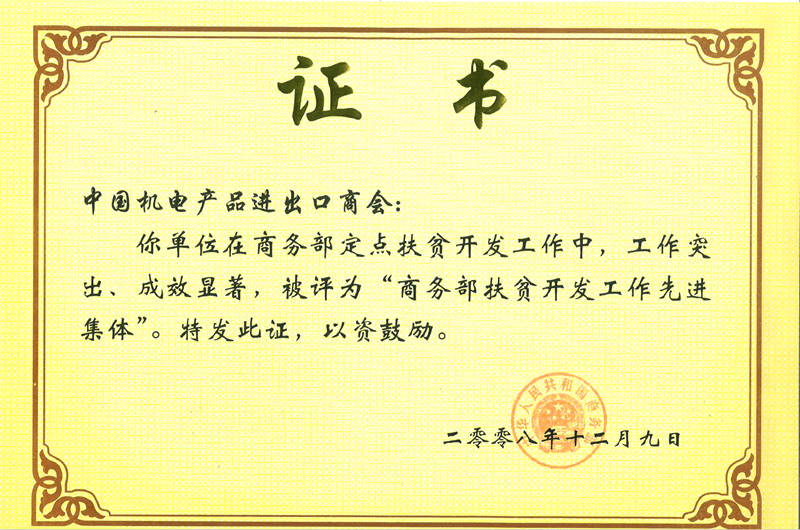 证 书
中国机电产品进出口商会：
你单位在商务部定点扶贫开发工作中，工作突
出、成效显著，被评为“商务部扶贫开发工作先进
集体”。特发此证，以资鼓励。
中华人民共和国商务部
二零零八年十二月九日